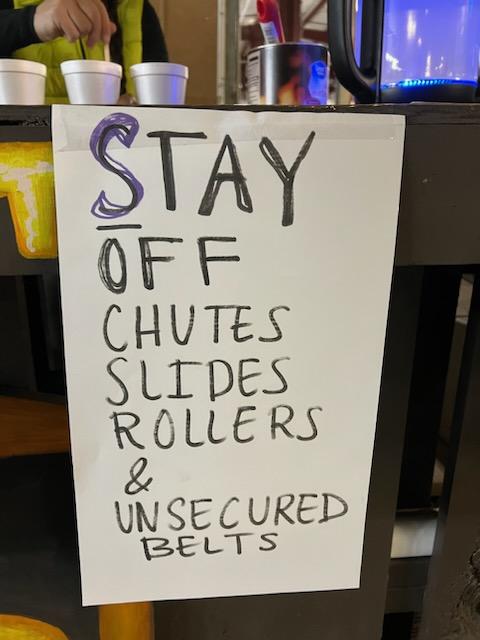 STAY
OFF
CHUTES
SLIDES
ROLLERS
&
UNSECURED
BELTS